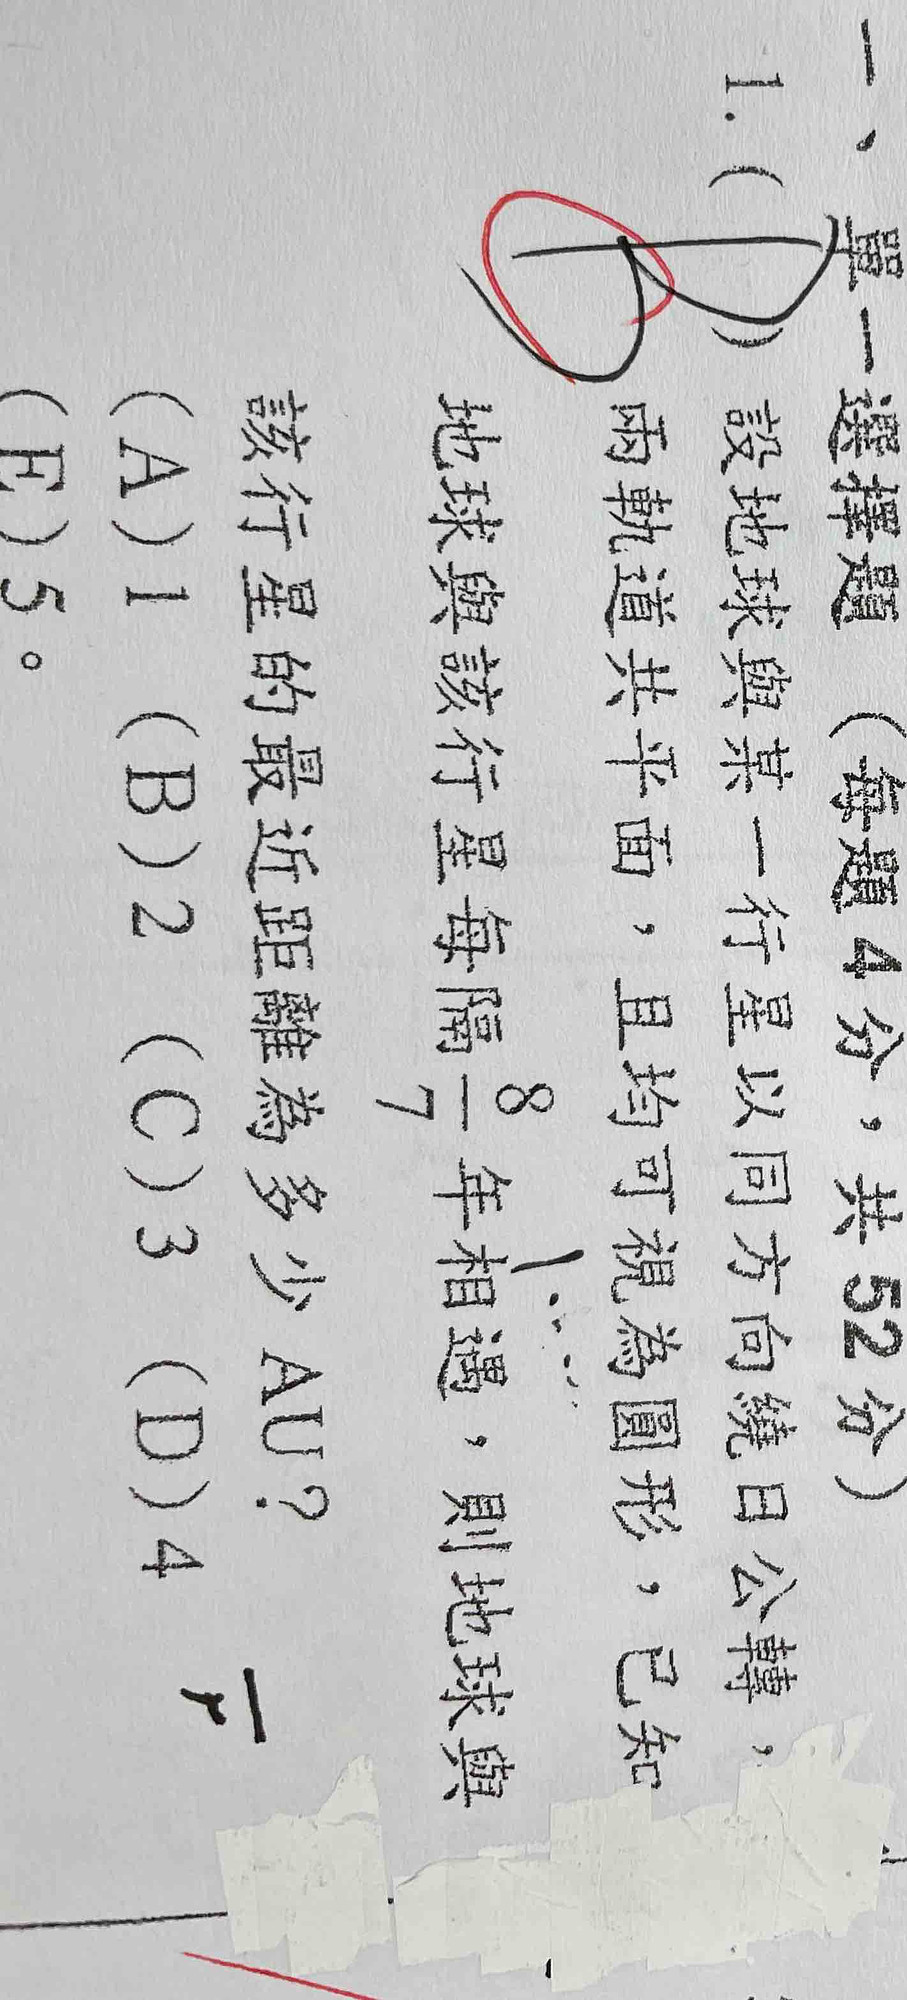 一、單一選擇題（每題4分，共52分）
1.( B ) 設地球與某一行星以同方向繞日公轉，
兩軌道共平面，且均可視為圓形，已知
地球與該行星每隔 8/7 年相遇，則地球與
該行星的最近距離為多少AU？
(A)1 (B)2 (C)3 (D)4
(E)5。